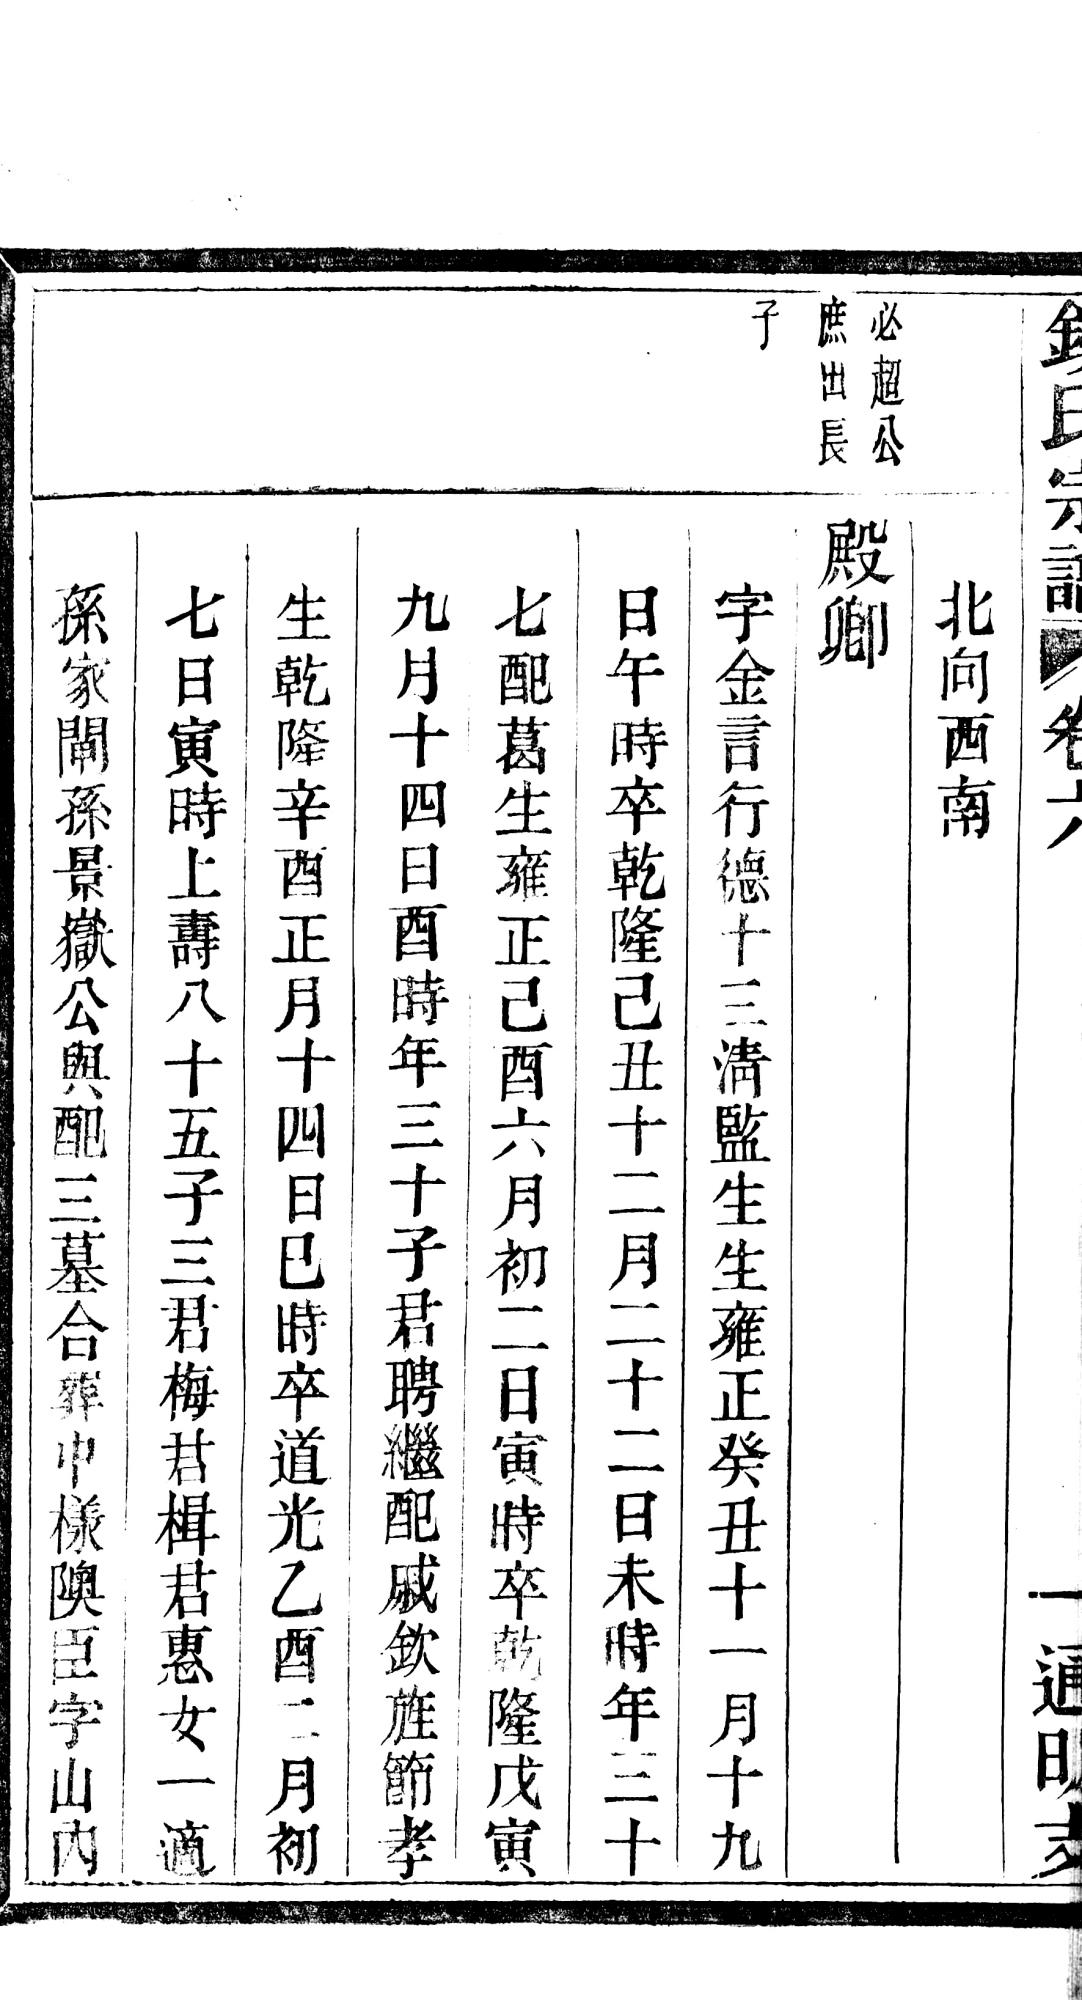 氏宗譜 卷六 一 通明支
必超公
庶出長
子
北向西南
殿卿
字金言行德十三清監生生雍正癸丑十一月十九
日午時卒乾隆己丑十二月二十二日未時年三十
七配葛生雍正己酉六月初二日寅時卒乾隆戊寅
九月十四日酉時年三十子君聘繼配戚欽旌節孝
生乾隆辛酉正月十四日巳時卒道光乙酉二月初
七日寅時上壽八十五子三君梅君楫君惠女一適
孫家閘孫景嶽公與配三墓合葬中樣隩臣字山內